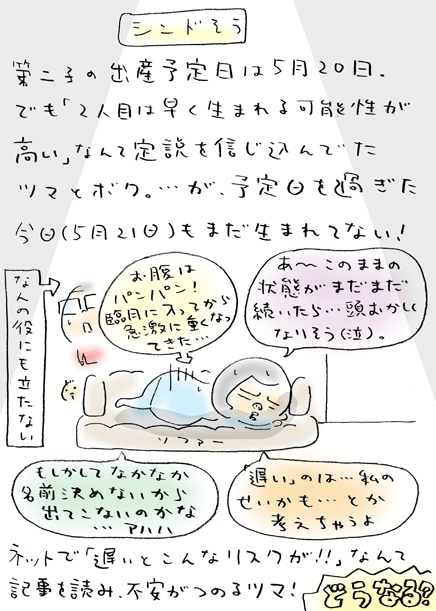 シンドそう
第二子の出産予定日は5月20日。
でも「2人目は早く生まれる可能性が
高い」なんて定説を信じ込んでた
ツマとボク。…が、予定日を過ぎた
今日(5月21日)もまだ生まれてない!
なんの役にも立たない
お腹は
パンパン!
臨月に入ってから
急激に重くなっ
てきた…
あ～このままの
状態がまだまだ
続いたら…頭おかしく
なりそう(泣)。
ソファー
もしかしてなかなか
名前決めないから
出てこないのかな
…アハハ
「遅い」のは…私の
せいかも…とか
考えちゃうよ
ネットで「遅いとこんなリスクが!!」なんて
記事を読み、不安がつのるツマ!
どうなる!?